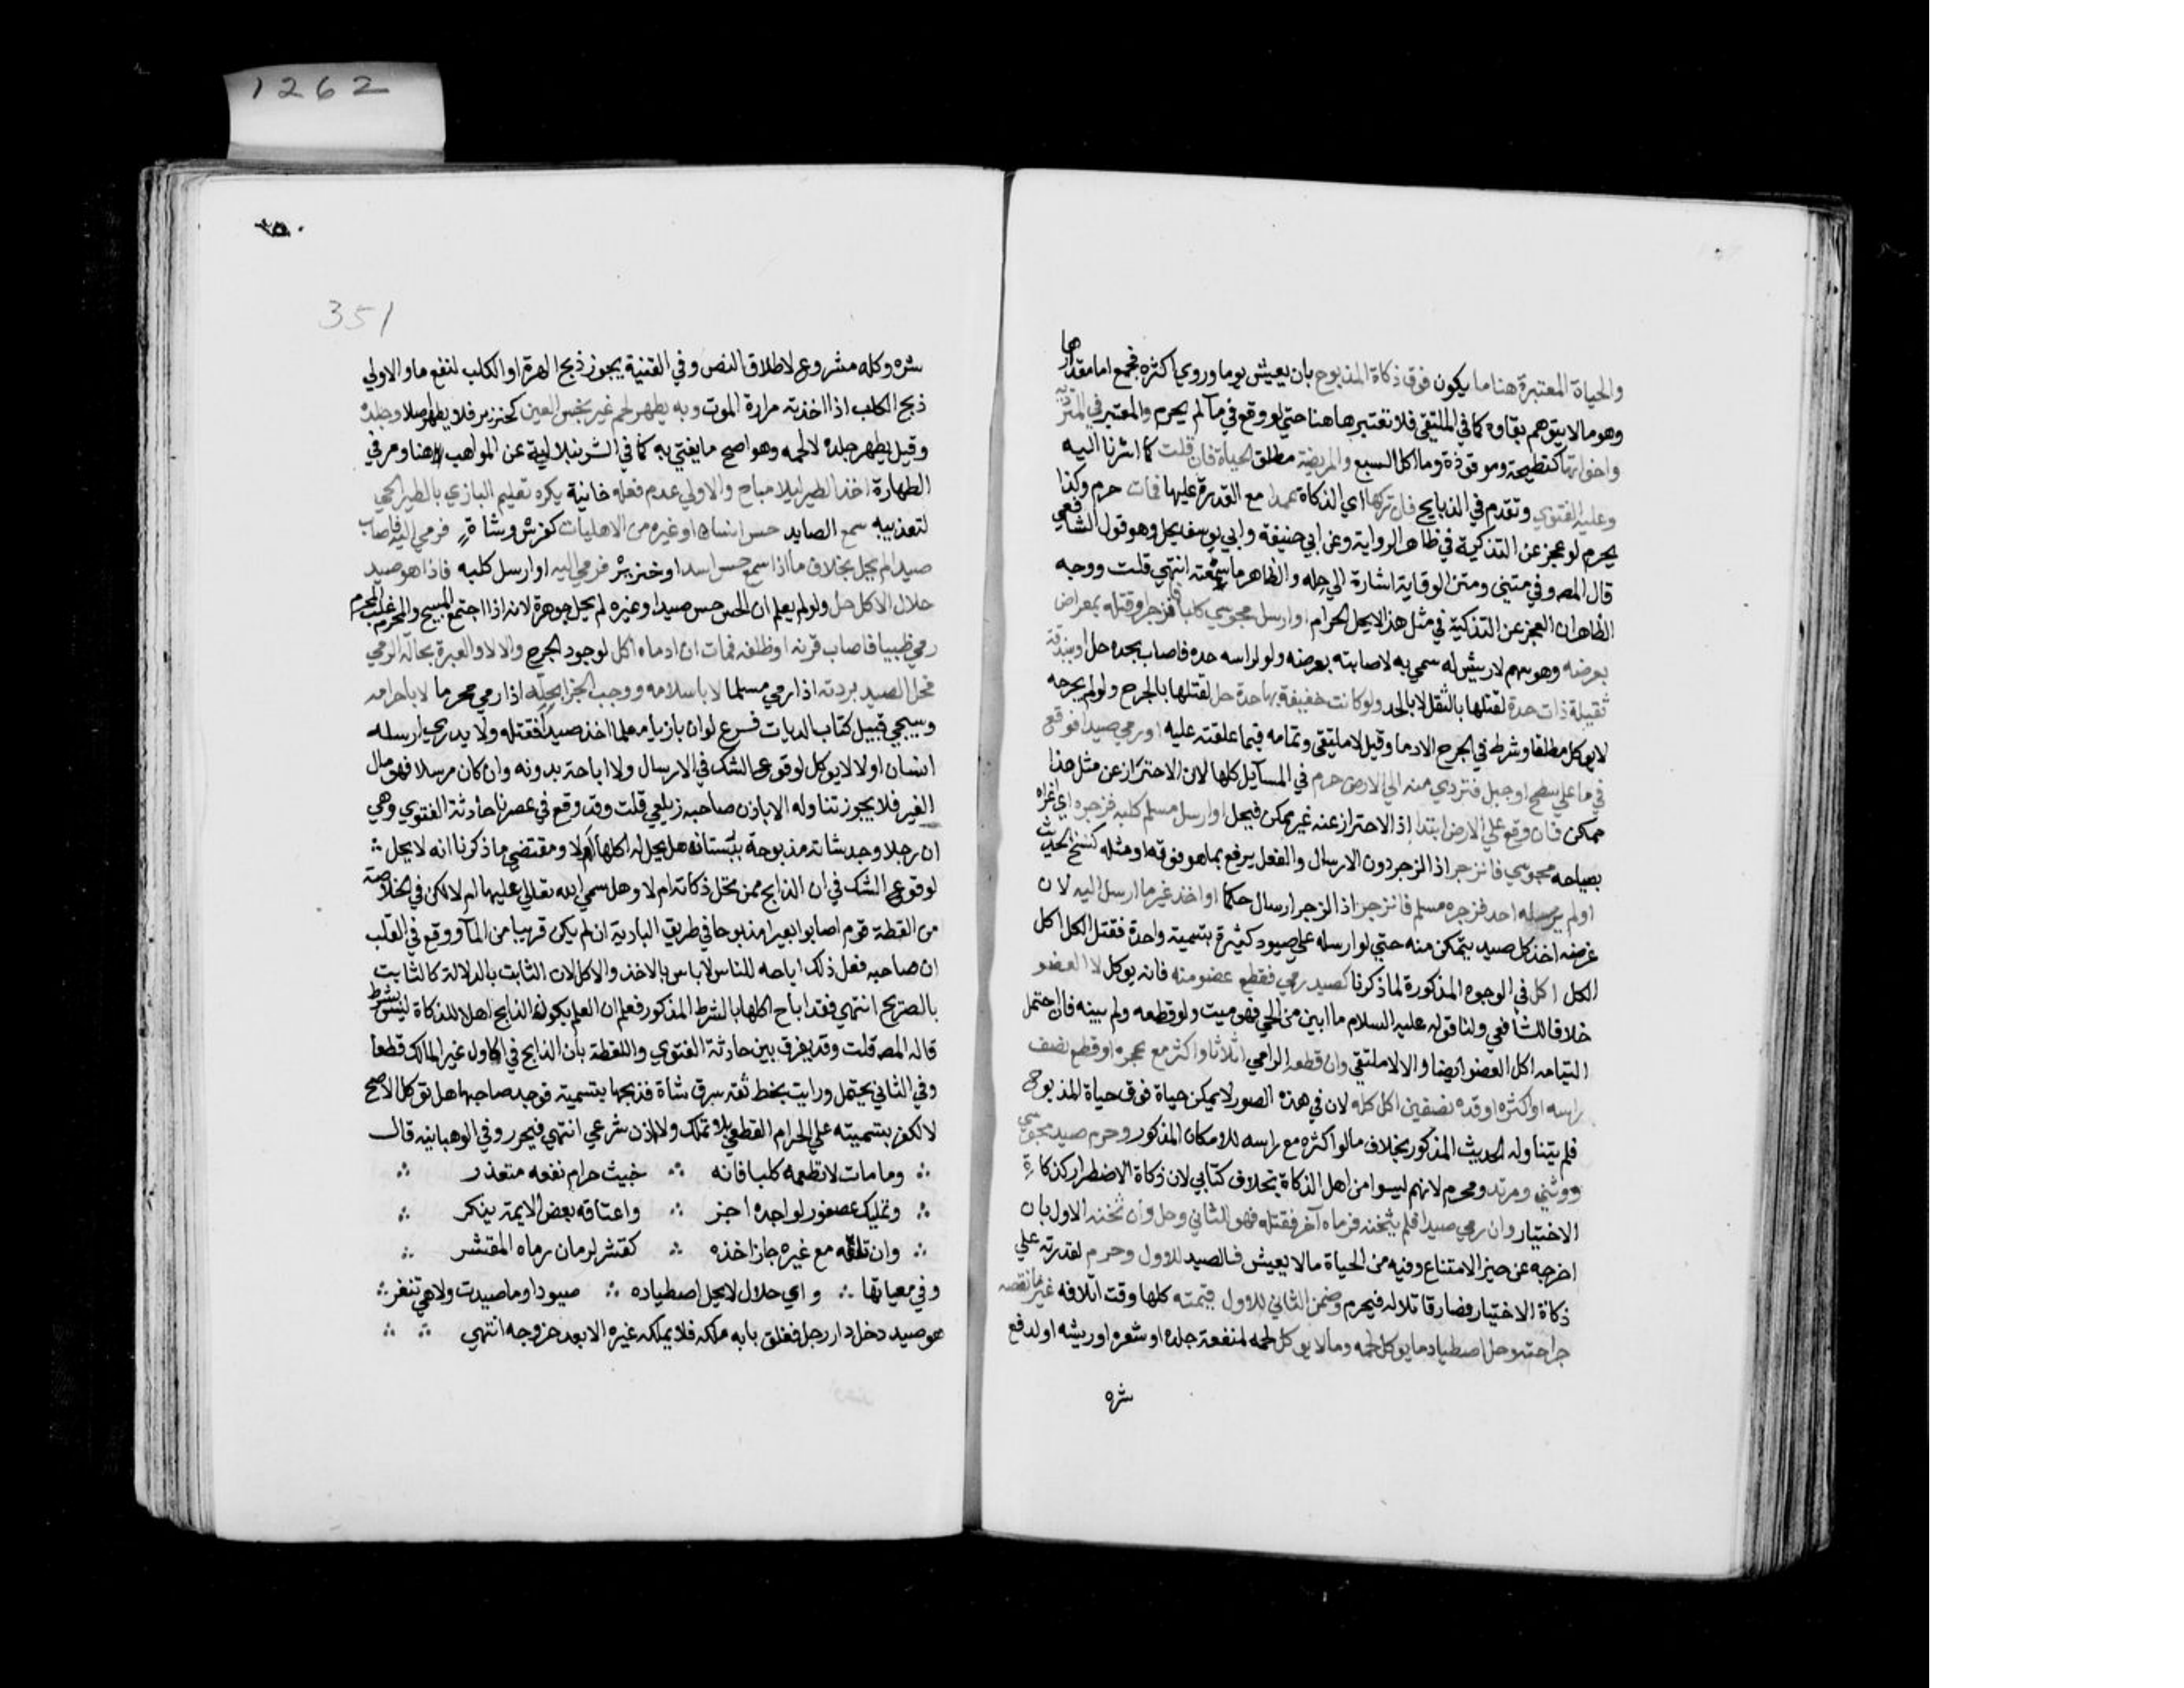 1262
والحياة المعتبرة هنا ما يكون فوق ذكاة المذبوح بان يعيش يوما وروي اكثره مجمع اما مقدارها
وهو ما لا يتوهم بقاوه كما في الملتقي فلا تعتبر هاهنا حتي لو وقع في مآ لم يحرم والمعتبر في المتردية
واخواتها كنطيحة وموقوذة وما اكل السبع والمريضة مطلق الحياة فان قلت كما اشرنا اليه
وعليه الفتوي وتقدم في الذبايح فان تركها اي الذكاة عمدا مع القدرة عليها فمات حرم وكذا
يحرم لو عجز عن التذكية في ظاهر الرواية وعن ابي حنيفة وابي يوسف يحل وهو قول الشافعي
قال المصه وفي متني ومتن الوقاية اشارة الي حله والظاهر ما سمعته انتهي قلت ووجه
الظاهر ان العجز عن التذكية في مثل هذا لا يحل الحرام او ارسل مجوسي كلبا فزجر وقتله بمعراض
بعرضه وهو سهم لا ريش له سمي به لاصابته بعرضه ولو لراسه حده فاصاب بحده حل او بندقة
ثقيلة ذات حدة لقتلها بالثقل لا بالحد ولو كانت خفيفة بها حدة حل لقتلها بالجرح ولو لم يجرحه
لا يوكل مطلقا وشرط في الجرح الادما وقيل لا ملتيقي وتمامه فيما علقته عليه او رمي صيدا فوقع
في ما علي سطح او جبل فتردي منه الي الارض حرم في المسآيل كلها لان الاحتراز عن مثل هذا
ممكن فان وقع علي الارض ابتدا إذ الاحتراز عنه غير ممكن فيحل او ارسل مسلم كلبه فزجره اي اغراه
بصياحه مجوسي فانزجر اذ الزجر دون الارسال والفعل يرفع بما هو فوقه او مثله كنسخ الحديث
او لم يرسله احد فزجره مسلم فانزجر اذ الزجر ارسال حكما او اخذ غير ما ارسل اليه لان
غرضه اخذ كل صيد يتمكن منه حتي لو ارسله علي صيود كثيرة بتسمية واحدة فقتل الكل اكل
الكل اكل في الوجوه المذكورة لما ذكرنا كصيد رمي فقطع عضو منه فانه يوكل لا العضو
خلافا للشافعي ولنا قوله عليه السلام ما ابين من الحي فهو ميت ولو قطعه ولم يبنه فان احتمل
التيامه اكل العضو ايضا والا لا ملتيقي وان قطعه الرامي اثلاثا واكثر مع عجزه او قطع نصف
راسه او اكثره او قده نصفين اكل كله لان في هذه الصور لا يمكن حياة فوق حياة المذبوح
فلم يتناوله الحديث المذكور بخلاف ما لو اكثره مع راسه للامكان المذكور وحرم صيد مجوسي
ووثني ومرتد ومحرم لانهم ليسوا من اهل الذكاة بخلاف كتابي لان ذكاة الاضطرار كذكاة
الاختيار وان رمي صيدا فلم يثخنه فرماه آخر فقتله فهو للثاني وحل وان ثخنه الاول بان
اخرجه عن حيز الامتناع وفيه من الحياة ما لا يعيش فالصيد للاول وحرم لقدرته علي
ذكاة الاختيار فصار قاتلا له فيحرم وضمن الثاني للاول قيمته كلها وقت اتلافه غير ما نقصه
جراحته وحل اصطياد ما يوكل لحمه وما لا يوكل لحمه لمنفعة جلده او شعره او ريشه او لدفع
شره
351
شره وكله مشروع لاطلاق النص وفي القنية يجوز ذبح الهرة او الكلب لنفع ما والاولي
ذبح الكلب اذا اخذته مرارة الموت وبه يطهر لحم غير نجس العين كخنزير فلا يطهر اصلا وجلده
وقيل يطهر جلده لا لحمه وهو اصح ما يفتي به كما في الشرنبلالية عن المواهب هنا ومر في
الطهارة اخذ الطير ليلا مباح والاولي عدم فعله خانية يكره تعليم البازي بالطير الحي
لتعذيبه سمع الصايد حس انسان او غيره من الاهليات كفرس وشاة فرمي اليه فاصاب
صيدا لم يحل بخلاف ما اذا سمع حس اسد او خنزير فرمي اليه او ارسل كلبه فاذا هو صيد
حلال الاكل حل ولو لم يعلم ان الحس حس صيد او غيره لم يحل جوهرة لانه اذا اجتمع المبيح والمحرم غلب المحرم
رمي ظبيا فاصاب قرنه او ظلفه فمات ان ادماه اكل لوجود الجرح والا لا والعبرة بحالة الرمي
فحل الصيد بردته اذا رمي مسلما لا باسلامه ووجب الجزا بحله اذا رمي محرما لا باحرامه
وسيجي قبيل كتاب الديات فرع لو ان بازيا معلما اخذ صيدا فقتله ولا يدري ارسله
انسان او لا لا يوكل لوقوع الشك في الارسال ولا اباحة بدونه وان كان مرسلا فهو مال
الغير فلا يجوز تناوله الا باذن صاحبه زيلعي قلت وقد وقع في عصرنا حادثة الفتوي وهي
ان رجلا وجد شاته مذبوحة ببستانه هل يحل له اكلها ام لا ومقتضي ما ذكرنا انه لا يحل
لوقوع الشك في ان الذابح ممن تحل ذكاته ام لا وهل سمي الله تعالي عليها ام لا لكن في الخلاصة
من القطة قوم اصابوا بعيرا مذبوحا في طريق البادية ان لم يكن قريبا من المآ ووقع في القلب
ان صاحبه فعل ذلك اباحه للناس لا باس بالاخذ والاكل لان الثابت بالدلالة كالثابت
بالصريح انتهي فقد اباح اكلها بالشرط المذكور فعلم ان العلم بكون الذابح اهلا للذكاة ليس بشرط
قاله المصه قلت وقد يفرق بين حادثة الفتوي واللقطة بان الذابح في الاول غير المالك قطعا
وفي الثاني يحتمل ورايت بخط ثقة سرق شاة فذبحها بتسمية فوجد صاحبها هل توكل الاصح
لا لكفر بتسميته علي الحرام القطعي بلا تملك ولا اذن شرعي انتهي فيحرر وفي الوهبانيه قال
وما مات لا تطعمه كلبا فانه ∴ خبيث حرام نفعه متعذر
وتمليك عصفور لواجده اجز ∴ واعتاقه بعض الايمة ينكر
وان تلقه مع غيره جاز اخذه ∴ كقشر لرمان رماه المقشر
وفي معياتها ∴ واي حلال لا يحل اصطياده ∴ صيودا وما صيدت ولا هي تنفر
هو صيد دخل دار رجل فغلق بابه ملكه فلا يملكه غيره الا بعد خروجه انتهي